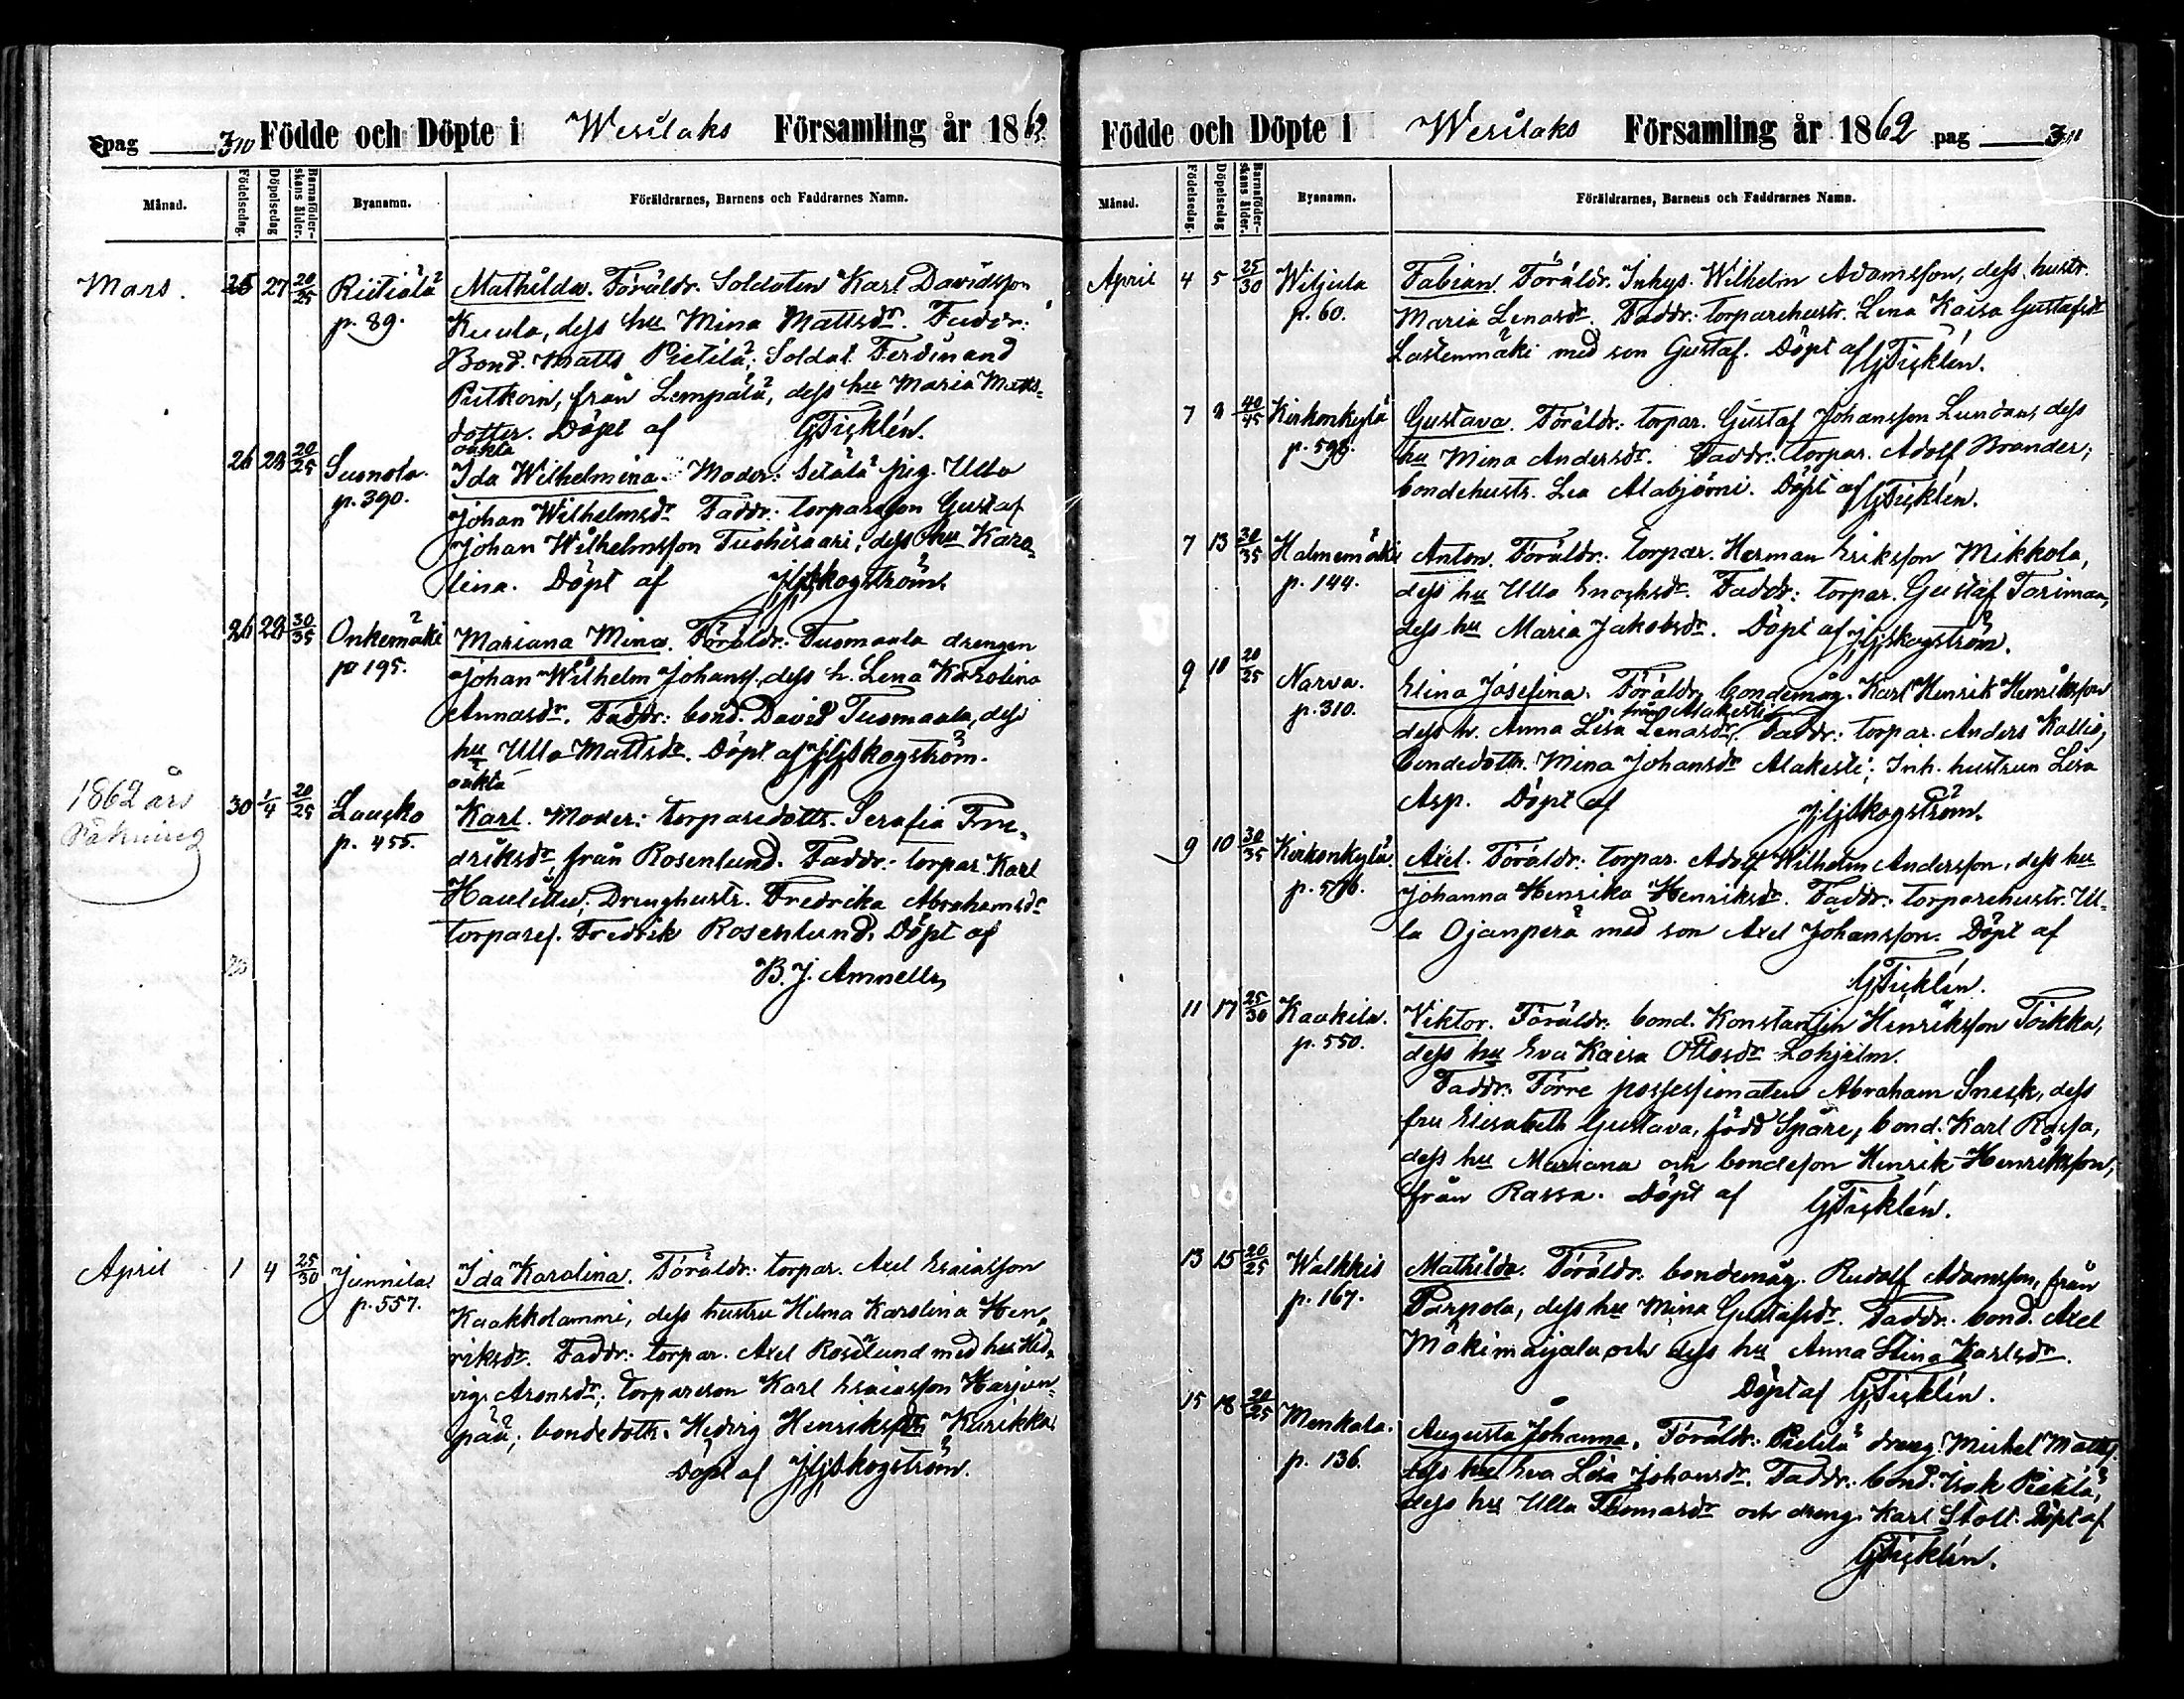 pag 310 Födde och Döpte i Wesilaks Församling år 1862.
Månad. Födelsedag. Döpelsedag Barnaföder-skans ålder. Byanamn. Föräldrarnes, Barnens och Faddrarnes Namn.
Mars. 25 27 20/25 Riitiälä Mathilda. Föräldr. Soldaten Karl Davidsson
p. 89. Kuula, dess hu Mina Mattsdr. Faddr:
Bond. Matts Pietilä; Soldat. Ferdinand
Putkoin, från Lempälä, dess hu Maria Matts-
dotter. Döpt af G Ticklén.
oäkta
26 28 20/25 Suonola Ida Wilhelmina. Moder: Setälä pig. Ulla
p. 390. Johan Wilhelmsdr Faddr: torpareson Gustaf
Johan Wilhelmsson Tuohisaari, dess hu Karo-
lina. Döpt af J Skogström.
26 29 30/35 Onkemäki Mariana Mina. Föräldr: Tuomaala drengen
p 195. Johan Wilhelm Johanss. dess h. Lena Karolina
Annasdr. Faddr: bond. David Tuomaala, dess
hu Ulla Mattsdr. Döpt af J Skogström.
oäkta
1862 års
Räkning
30 1/4 20/25 Laucko Karl. Moder: torparedottr. Serafia Fre-
p. 455. driksdr, från Rosenlund. Faddr: torpar. Karl
Haulittu; Drenghustr. Fredrika Abrahamsdr
torpares. Fredrik Rosenlund. Döpt af
B. J. Amnelln
April 1 4 25/30 Junnila Ida Karolina. Föräldr: torpar. Axel Esaiasson
p. 557. Kaakkolammi, dess hustru Hilma Karolina Hen-
riksdr. Faddr: torpar. Axel Roselund med hu Hed-
vig Aronsdr; torpareson Karl Esaiasson Harjun-
pää; bondedottr. Hedvig Henriksdr Kurikka
Döpt af J Skogström.
Födde och Döpte i Wesilaks Församling år 1862 pag 311
Månad. Födelsedag. Döpelsedag Barnaföder-skans ålder. Byanamn. Föräldrarnes, Barnens och Faddrarnes Namn.
April 4 5 25/30 Wiljula Fabian. Föräldr. Inhys. Wilhelm Adamsson, dess hustr.
p. 60. Maria Lenasdr. Faddr: torparehustr. Lena Kaisa Gustafsdr
Lastenmäki med son Gustaf. Döpt af G Ticklén.
7 8 40/45 Kirkonkylä Gustava. Föräldr: torpar. Gustaf Johansson Lundan, dess
hu Mina Andersdr. Faddr: torpar. Adolf Brander;
bondehustr. Lea Alabjörni. Döpt af G Ticklén.
7 13 30/35 Halmemäki Anton. Föräldr: torpar. Herman Eriksson Mikkola,
p. 144. dess hu Ulla Enochsdr. Faddr: torpar. Gustaf Tariman,
dess hu Maria Jakobsdr. Döpt af J Skogström.
9 10 20/25 Narva. Elina Josefina. Föräldr. bondemåg. Karl Henrik Henriksson
från Alakesti
p. 310. dess h. Anna Lisa Lenasdr. Faddr: torpar. Anders Kallio;
bondedottr. Mina Johansdr Alakesti; Inh. hustrun Lisa
Asp. Döpt af J Skogström.
9 10 30/35 Kirkonkylä Axel. Föräldr: torpar. Adolf Wilhelm Andersson, dess hu
Johanna Henrika Henriksdr. Faddr: torparehustr. Ul-
la Ojanperä med son Axel Johansson. Döpt af
G Ticklén.
11 17 25/30 Kaakila. Viktor. Föräldr: bond. Konstantin Henriksson Toikka,
p. 550. dess hu Eva Kaisa Ottosdr Lohjelm.
Faddr: Förre possessionaten Abraham Sneck, dess
fru Elisabeth Gustava, född Spåre, bond. Karl Rassa,
dess hu Mariana och bondeson Henrik Henriksson,
från Rassa. Döpt af G Ticklén.
13 15 20/25 Walkkis Mathilda. Föräldr. bondemåg. Rudolf Adamsson, från
p. 167. Parpola, dess hu Mina Gustafsdr. Faddr: bond. Axel
Mäkimaijala och dess hu Anna Stina Karlsdr.
Döpt af G Ticklén.
15 18 20/25 Menkala. Augusta Johanna. Föräldr: Pietilä dreng. Michel Matts.
p. 136. dess hu Eva Lisa Johansdr. Faddr: bond. Isak Pietilä,
dess hu Ulla Thomasdr och dreng. Karl Stolt. Döpt af
G Ticklén.